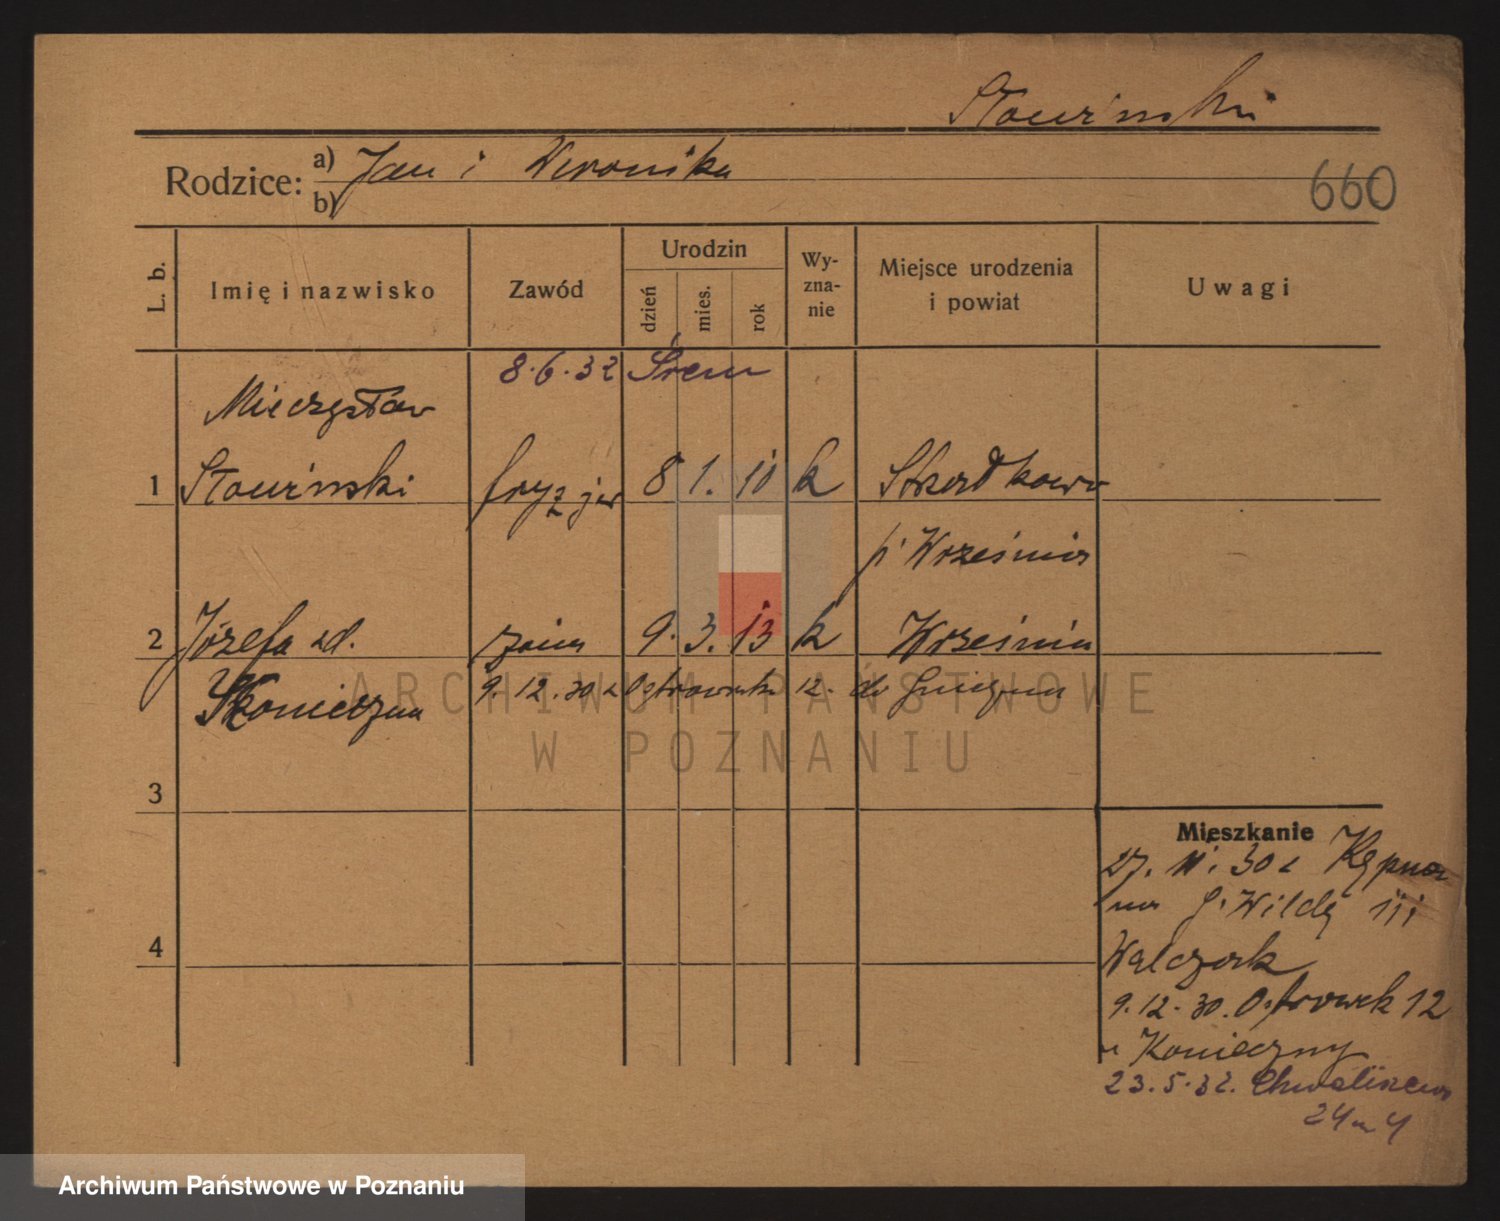 Słowiński
Rodzice: a) Jan i Weronika
b)
660
L. b.
Imię i nazwisko
Zawód
Urodzin
dzień
mies.
rok
Wy-
zna-
nie
Miejsce urodzenia
i powiat
Uwagi
8.6.32 Śrem
Mieczysław
1 Słowiński fryzjer 8 1. 10 k
p. Września
2 Józefa zd. żona 9. 3. 13 k Września
Konieczna 9.12.30 z Ostrówek 12. do Gniezna
ARCHIWUM PAŃSTWOWE
W POZNANIU
3
4
Mieszkanie
27. 11. 30 z Kępna
na G. Wildę 111
Walczak
9.12.30. Ostrówek 12
u Konieczny
23.5.32. Chwaliszewo
24 m 4
Archiwum Państwowe w Poznaniu